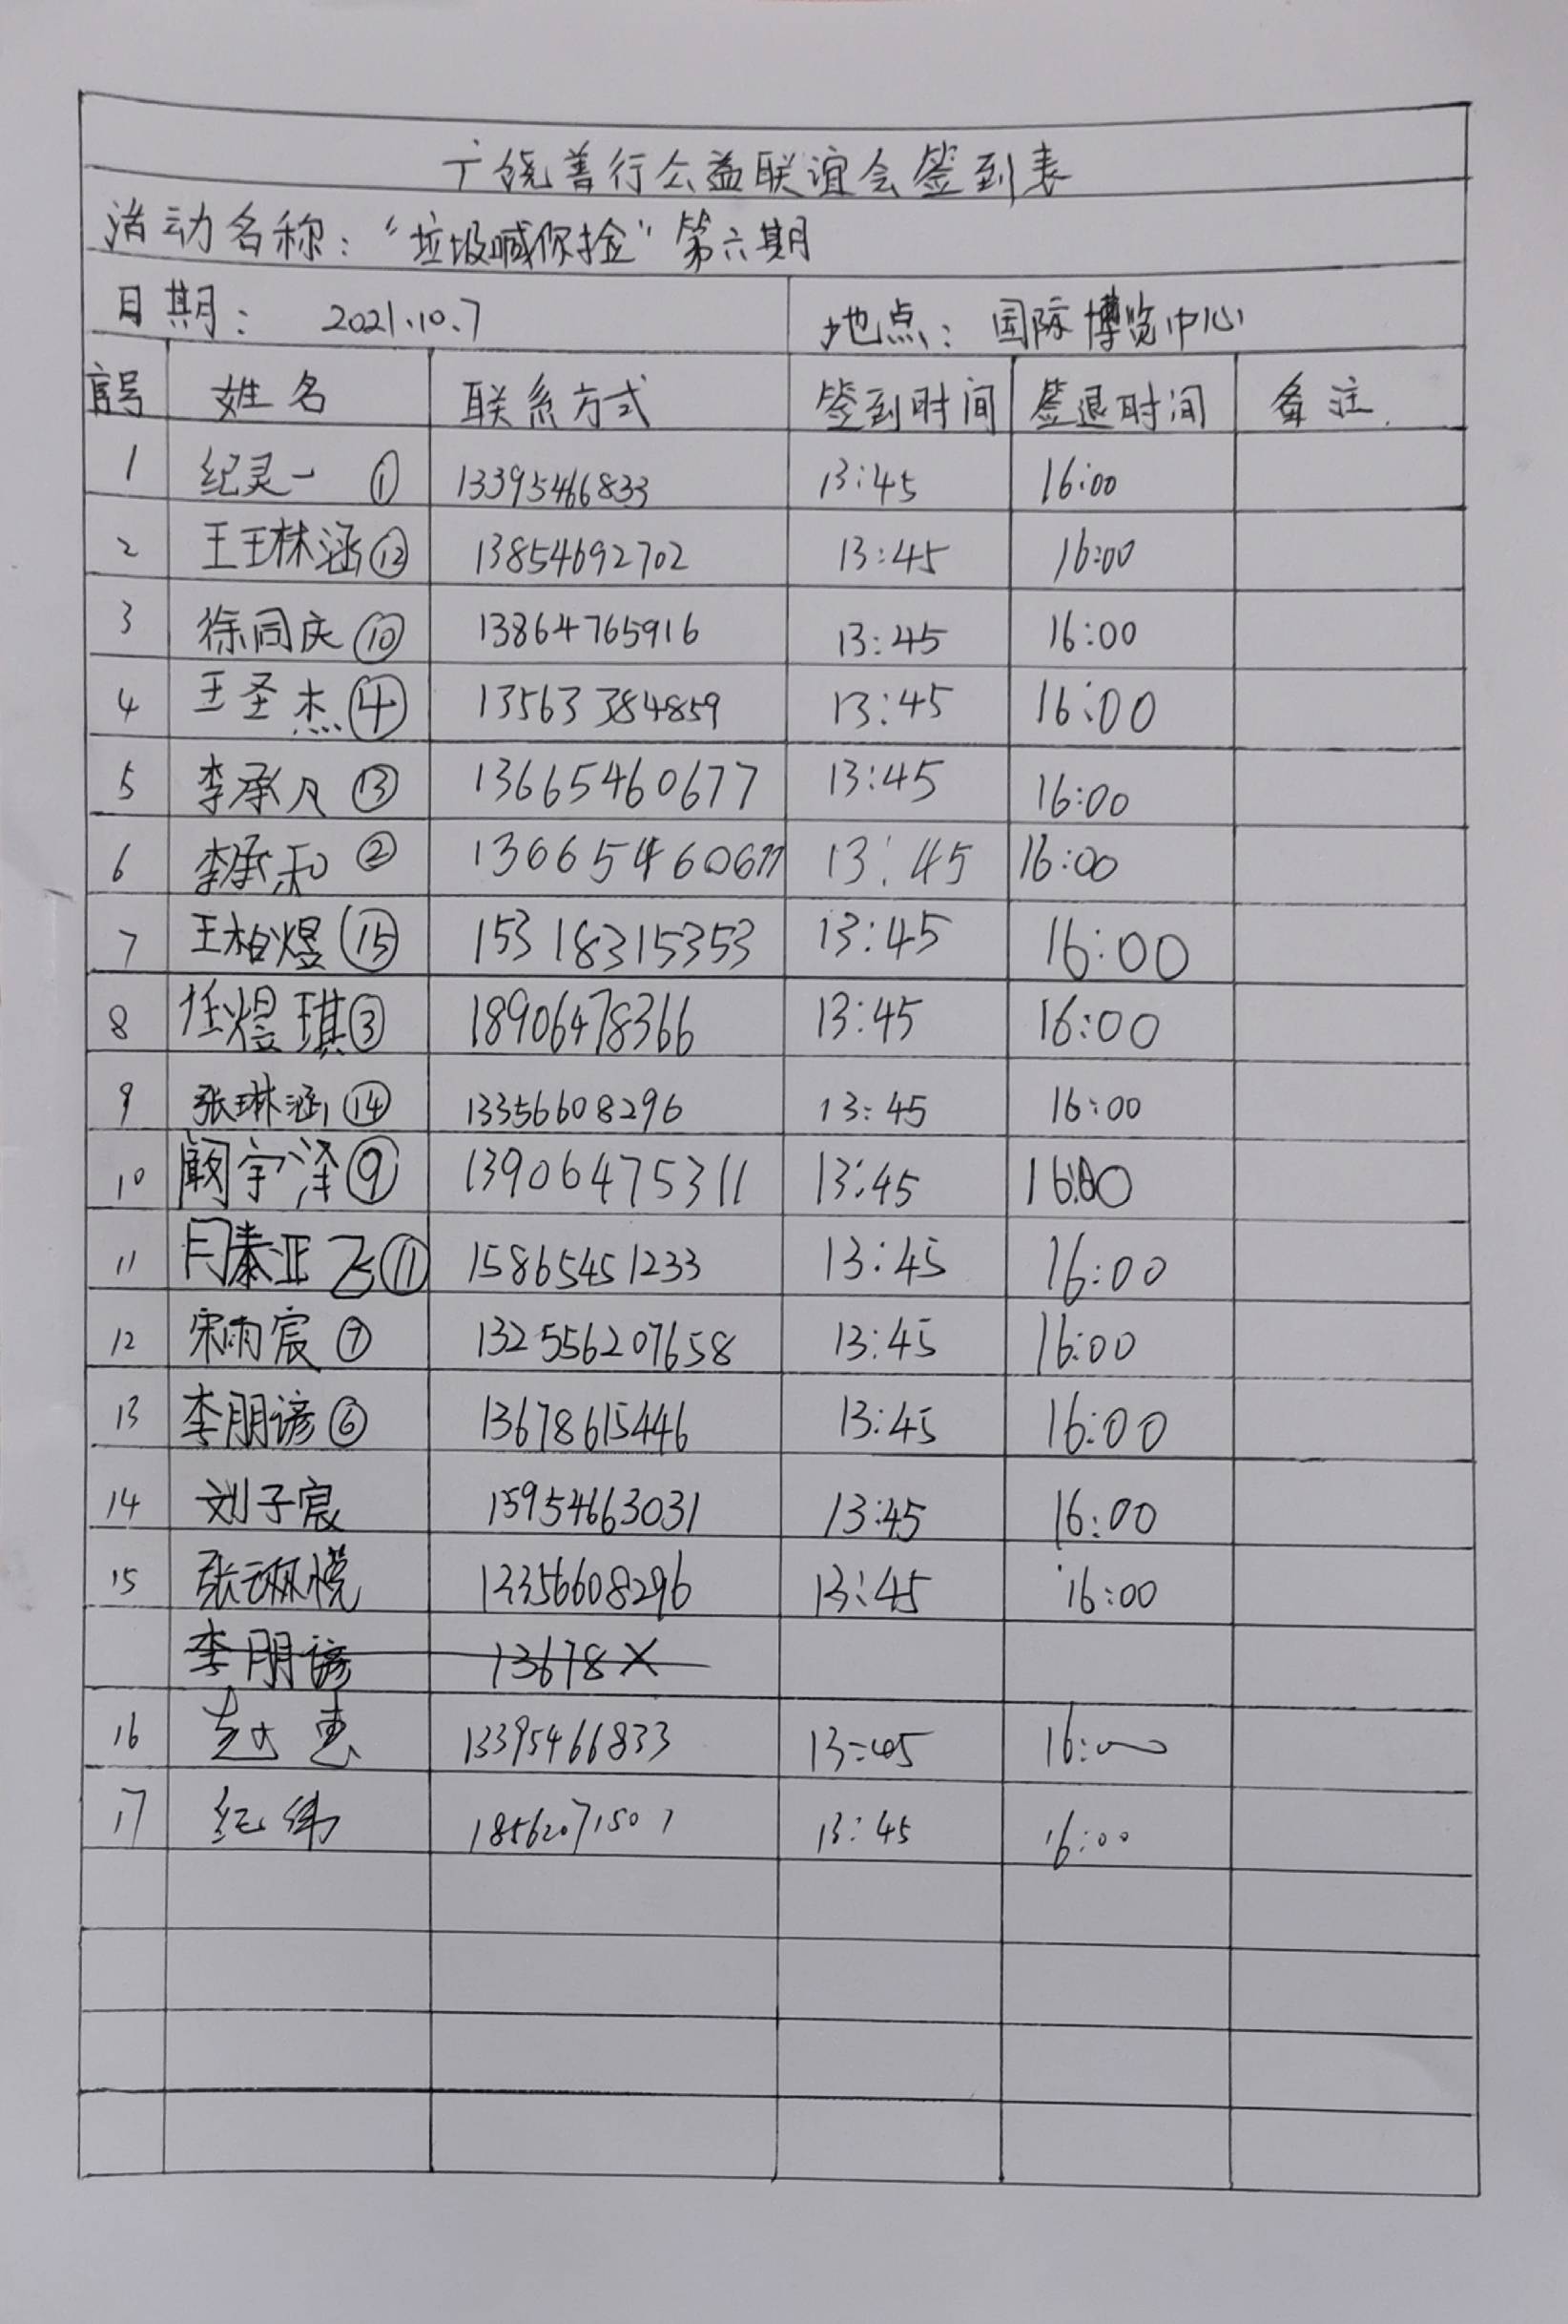 广饶善行公益联谊会签到表
活动名称：“垃圾喊你捡”第六期
日期： 2021.10.7 地点：国际博览中心
序号 姓名 联系方式 签到时间 签退时间 备注
1 纪灵一 ① 13395466833 13:45 16:00
2 王王林涵 ⑫ 13854692702 13:45 16:00
3 徐同庆 ⑩ 13864765916 13:45 16:00
4 王圣杰 ④ 13563384859 13:45 16:00
5 李承凡 ⑬ 13665460677 13:45 16:00
6 李承和 ② 13665460677 13:45 16:00
7 王柏煜 ⑮ 15318315353 13:45 16:00
8 任煜琪 ③ 18906478366 13:45 16:00
9 张琳涵 ⑭ 13356608296 13:45 16:00
10 阚宇泽 ⑨ 13906475311 13:45 16:00
11 闫泰亚飞 ⑪ 15865451233 13:45 16:00
12 宋雨宸 ⑦ 132556207658 13:45 16:00
13 李朋谚 ⑥ 13678615446 13:45 16:00
14 刘子宸 15954663031 13:45 16:00
15 张琳悦 13356608296 13:45 16:00
李朋谚 13678X
16 赵惠 13395466833 13:45 16:00
17 纪纬 18562071507 13:45 16:00